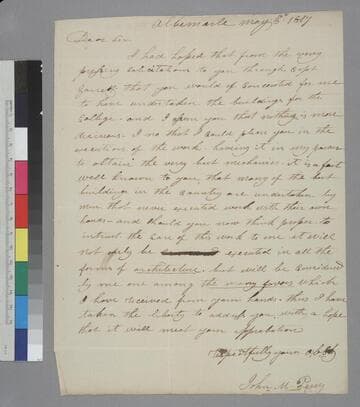 Albemarle May 5th 1817
Dear Sir
I had hoped that from the very
pressing solicitations to you through Capt
Garrett that you would of concented for me
to have undertaken the buildings for the
College - and I assure you that nothing is more
desirous. I no that I could please you in the
execution of the work having it in my power
to obtain the very best mechanics. it is a fact
well known to you, that many of the best
buildings in the Country are undertaken by
men that never executed work with their own
hands - and should you now think proper to
intrust the care of this work to me it will
not only be executed in all the
forms of architecture but will be considered
by me one among the many favors which
I have received from your hands. thus I have
taken the liberty to address you with a hope
that it will meet your approbation
Respectfully your Ob St
John M Perry